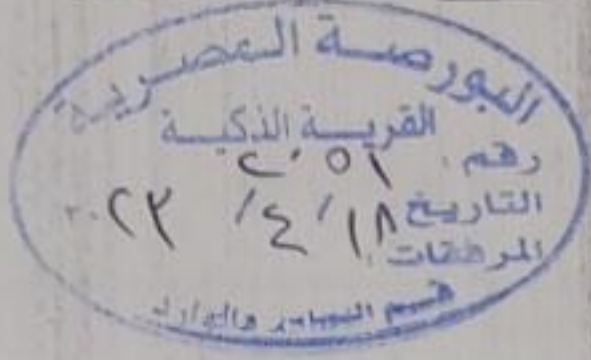 البورصة المصرية
القرية الذكية
رقم : ٢٠٥١
التاريخ ١٨ / ٤ / ٢٠٢٣
المرفقات :
قسم الصادر والوارد